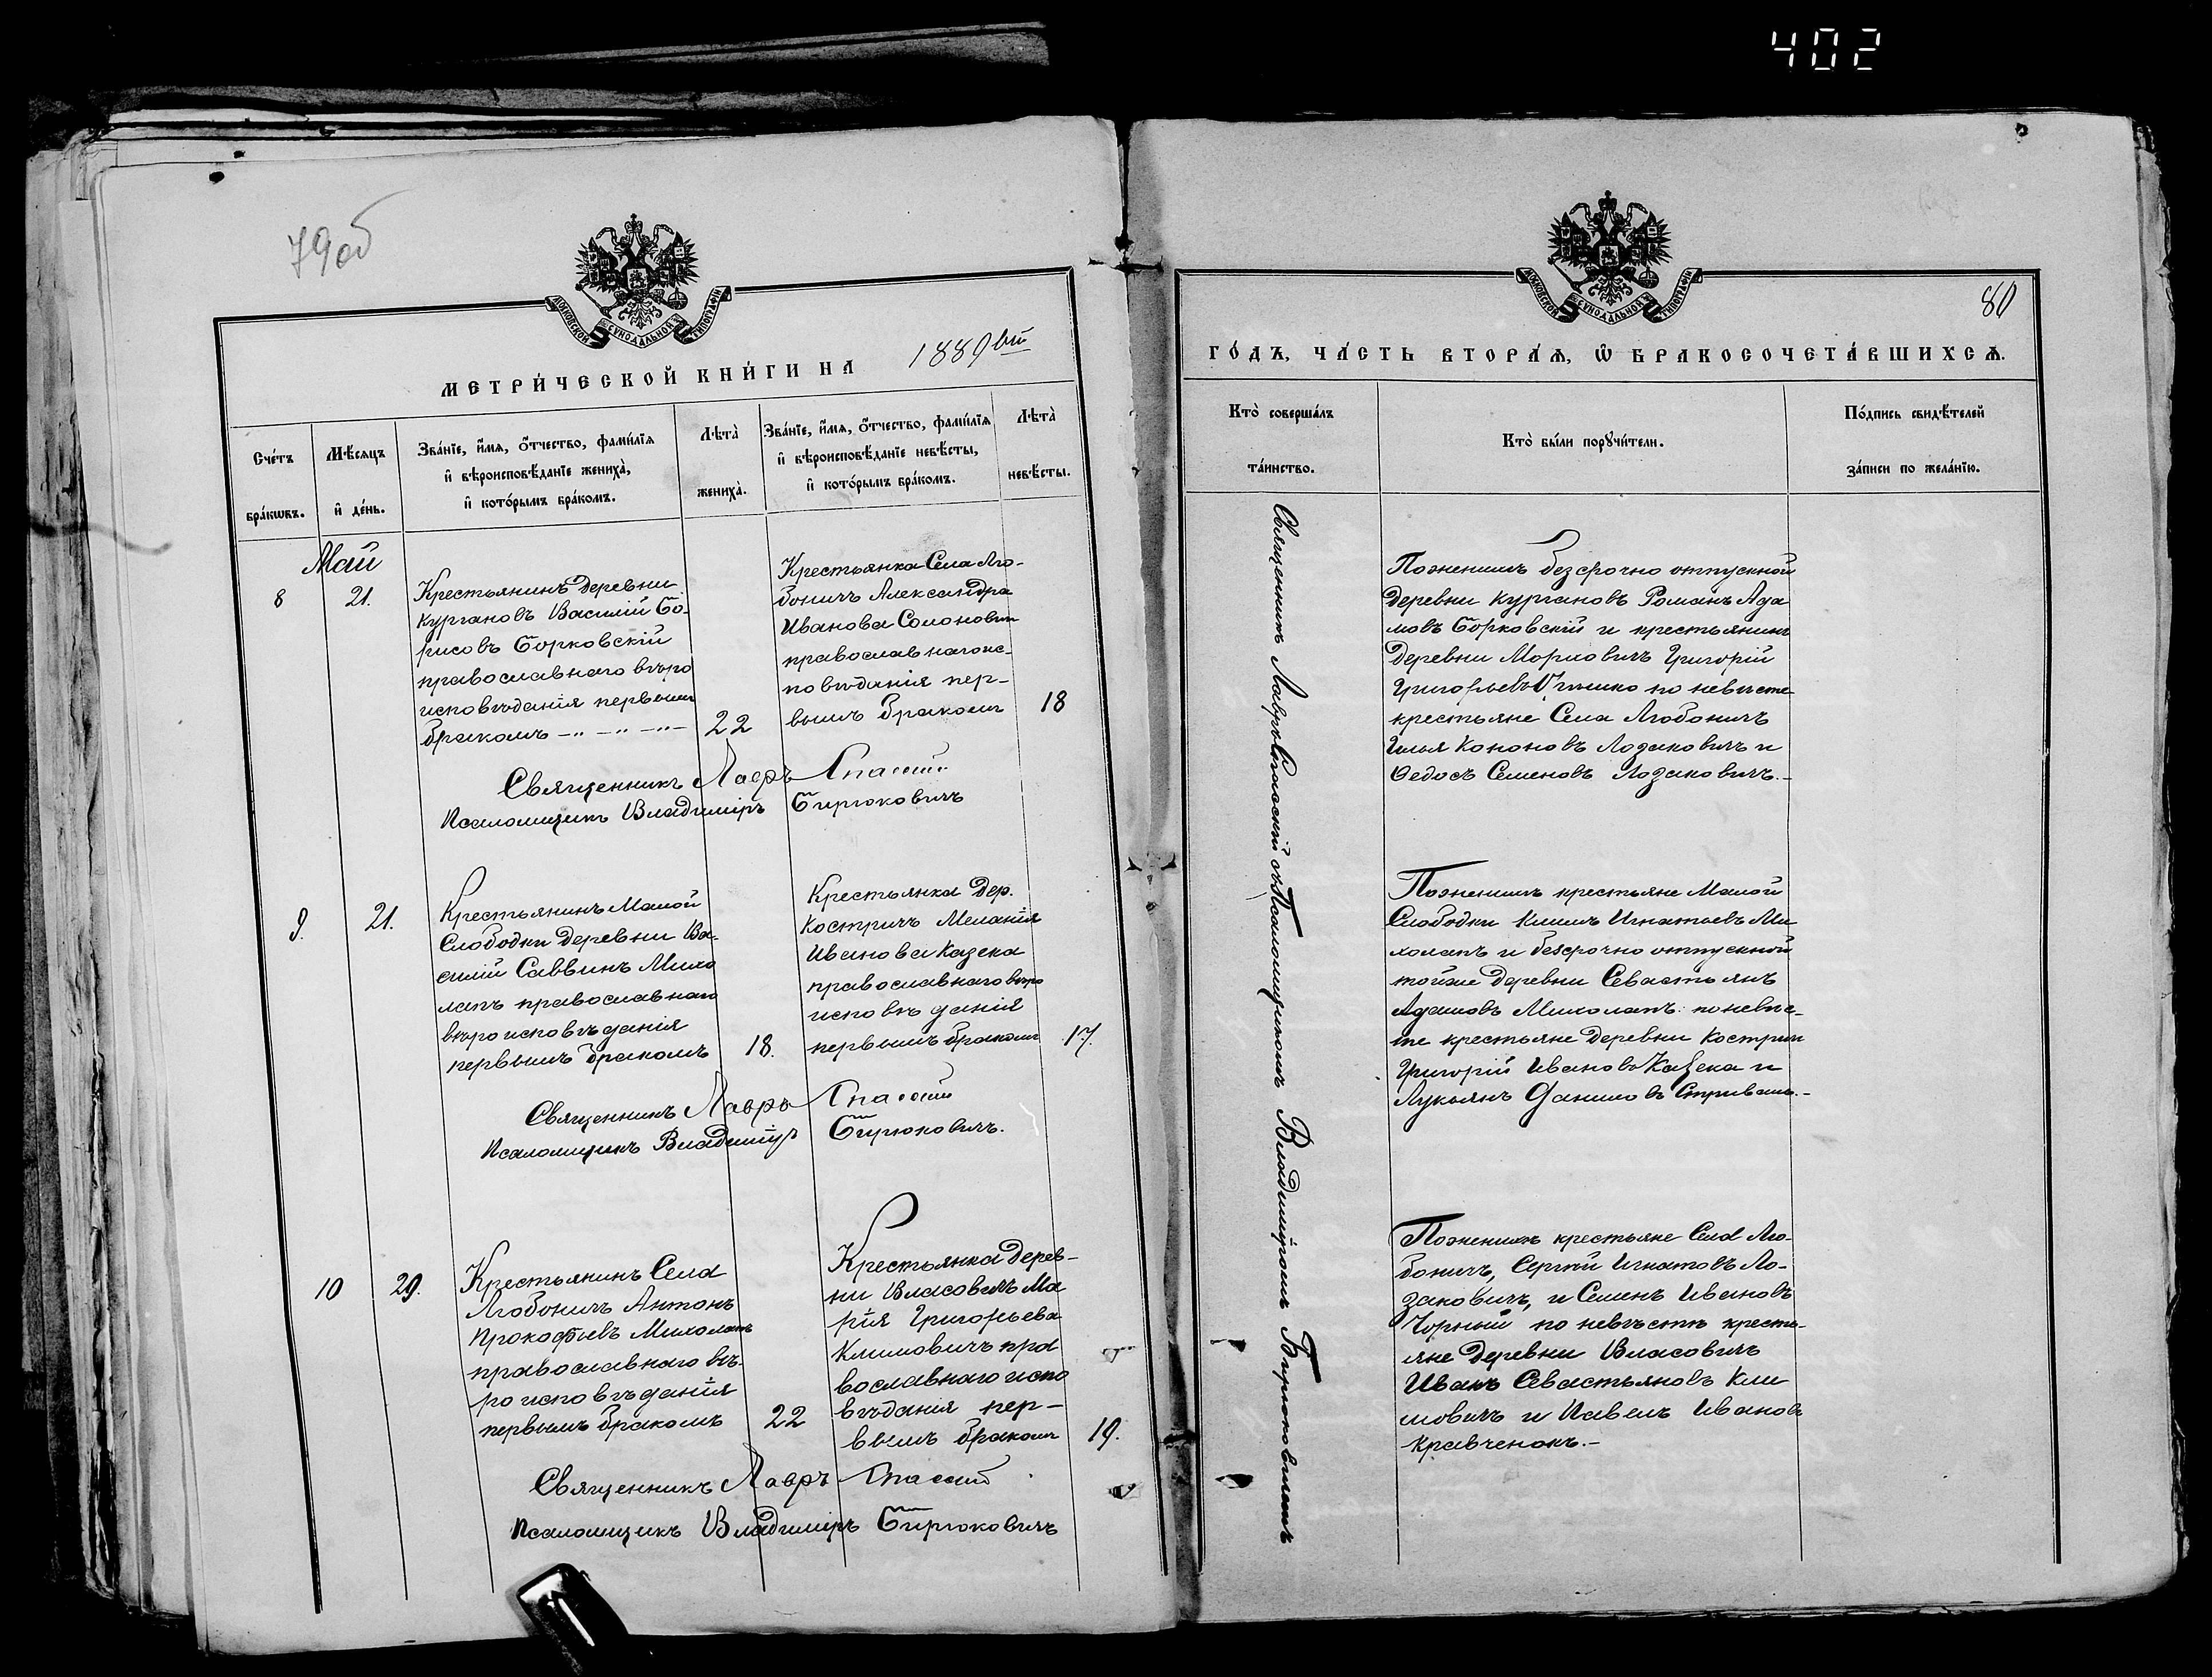 402
79об
МОСКОВСКОЙ СѴНОДАЛЬНОЙ ТИПОГРАФІИ
МЕТРИ́ЧЕСКОЙ КНИ́ГИ НА 1889вый
Сче́тъ бра́кѡвъ.
Мѣ́сяцъ и҆ де́нь.
Зва́нїе, и҆́мя, ѻ҆́тчество, фами́лїя
и҆ вѣроисповѣ́данїе жениха̀,
и҆ кото́рымъ бра́комъ.
Лѣта̀ жениха̀.
Зва́нїе, и҆́мя, ѻ҆́тчество, фами́лїя
и҆ вѣроисповѣ́данїе невѣ́сты,
и҆ кото́рымъ бра́комъ.
Лѣта̀ невѣ́сты.
Май
8
21.
Крестьянинъ деревни
Кургановъ Василій Бо-
рисовъ Борковскій
православнаго вѣро
исповѣданія первымъ
бракомъ -„- -„- -„-
22
Крестьянка Села Лю-
боничъ Александра
Иванова Солоновичъ
православнаго ис-
повѣданія пер-
вымъ бракомъ
18
Священникъ Лавръ Спасскій
Псаломщикъ Владиміръ Бирюковичъ
9.
21.
Крестьянинъ Малой
Слободки деревни Ва-
силій Саввинъ Михо
лапъ православнаго
вѣроисповѣданія
первымъ бракомъ
18.
Крестьянка дер.
Костричъ Меланія
Иванова Казека
православнаго вѣро
исповѣданія
первымъ бракомъ
17.
Священникъ Лавръ Спасскій
Псаломщикъ Владиміръ Бирюковичъ.
10
29.
Крестьянинъ Села
Любоничъ Антонъ
Прокофьевъ Михолапъ
православнаго вѣ-
роисповѣданія
первымъ бракомъ
22
Крестьянка дерев-
ни Власовичъ Ма
рія Григорьева
Климовичъ пра
вославнаго испо
вѣданія пер-
вымъ бракомъ
19.
Священникъ Лавръ Спасскій
Псаломщикъ Владиміръ Бирюковичъ
80
МОСКОВСКОЙ СѴНОДАЛЬНОЙ ТИПОГРАФІИ
ГО́ДЪ, ЧА́СТЬ ВТОРА́Я, Ѡ҆ БРАКОСОЧЕТА́ВШИХСЯ.
Кто̀ соверша́лъ
та́инство.
Кто̀ бы́ли порꙋчи́тели.
По́дпись свидѣ́телей
за́писи по жела́нїю.
Священникъ Лавръ Спасскій съ Псаломщикомъ Владиміромъ Бирюковичемъ
По женихѣ безсрочно отпускной
деревни Кургановъ Романъ Ада
мовъ Борковскій и крестьянинъ
деревни Морховичъ Григорій
Григорьевъ по невѣсте
крестьяне Села Любоничъ
Илья Кононовъ Лозаковичъ и
Ѳедосъ Семеновъ Лозаковичъ.-
По женихѣ крестьяне Малой
Слободки Климъ Игнатьевъ Ми
холапъ и безсрочно отпускной
тойже деревни Севастьянъ
Адамовъ Михолапъ: по невѣс-
те крестьяне деревни Костричъ
Григорій Ивановъ Казека и
Лукьянъ Даниловъ
По женихѣ крестьяне Села Лю-
боничъ, Сергѣй Игнатовъ Ло-
заковичъ, и Семенъ Ивановъ
Чорный по невѣстѣ кресть-
яне деревни Власовичъ
Иванъ Севастьяновъ Кли
мовичъ и Павелъ Ивановъ
Кравченокъ.-